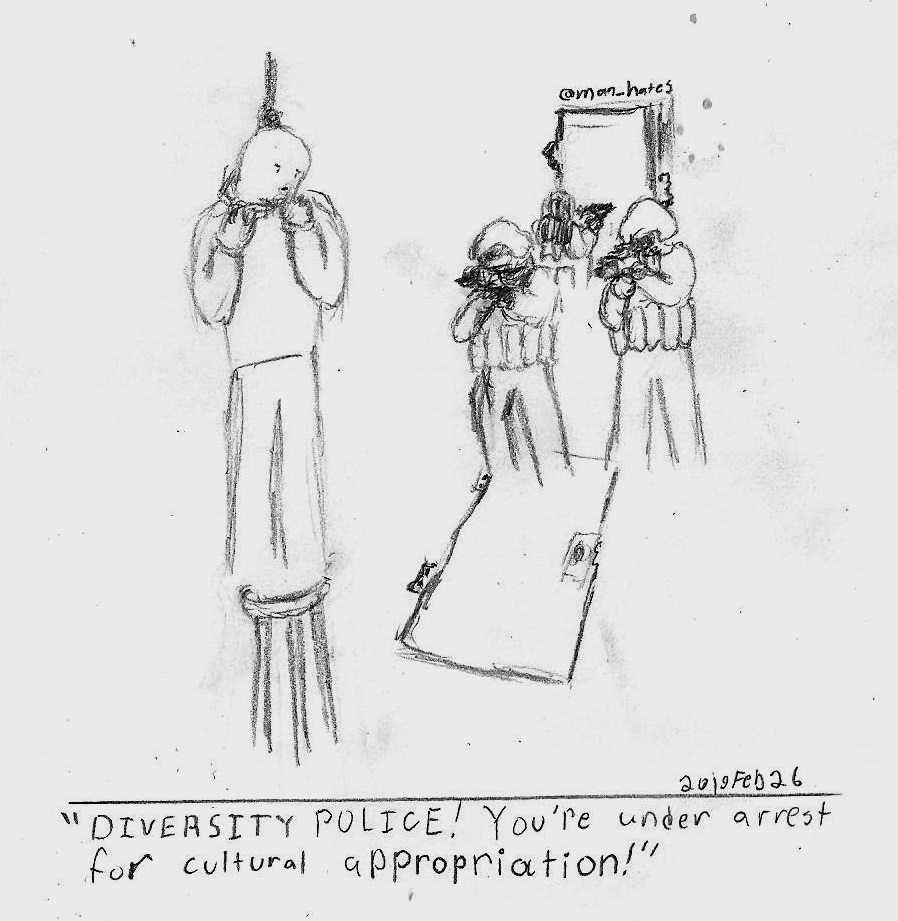 @man_hates
2019Feb26
"DIVERSITY POLICE! You're under arrest
for cultural appropriation!"